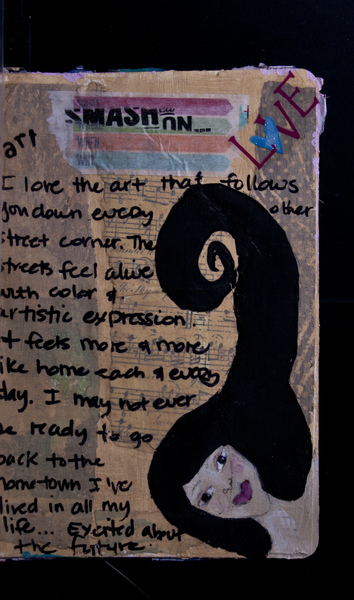 LOVE
SMASH
ON...
WHEN
art
I love the art that follows
you down every other
street corner. The
streets feel alive
with color &
artistic expression.
It feels more & more
like home each & every
day. I may not ever
be ready to go
back to the
hometown I've
lived in all my
life... Excited about
the future.